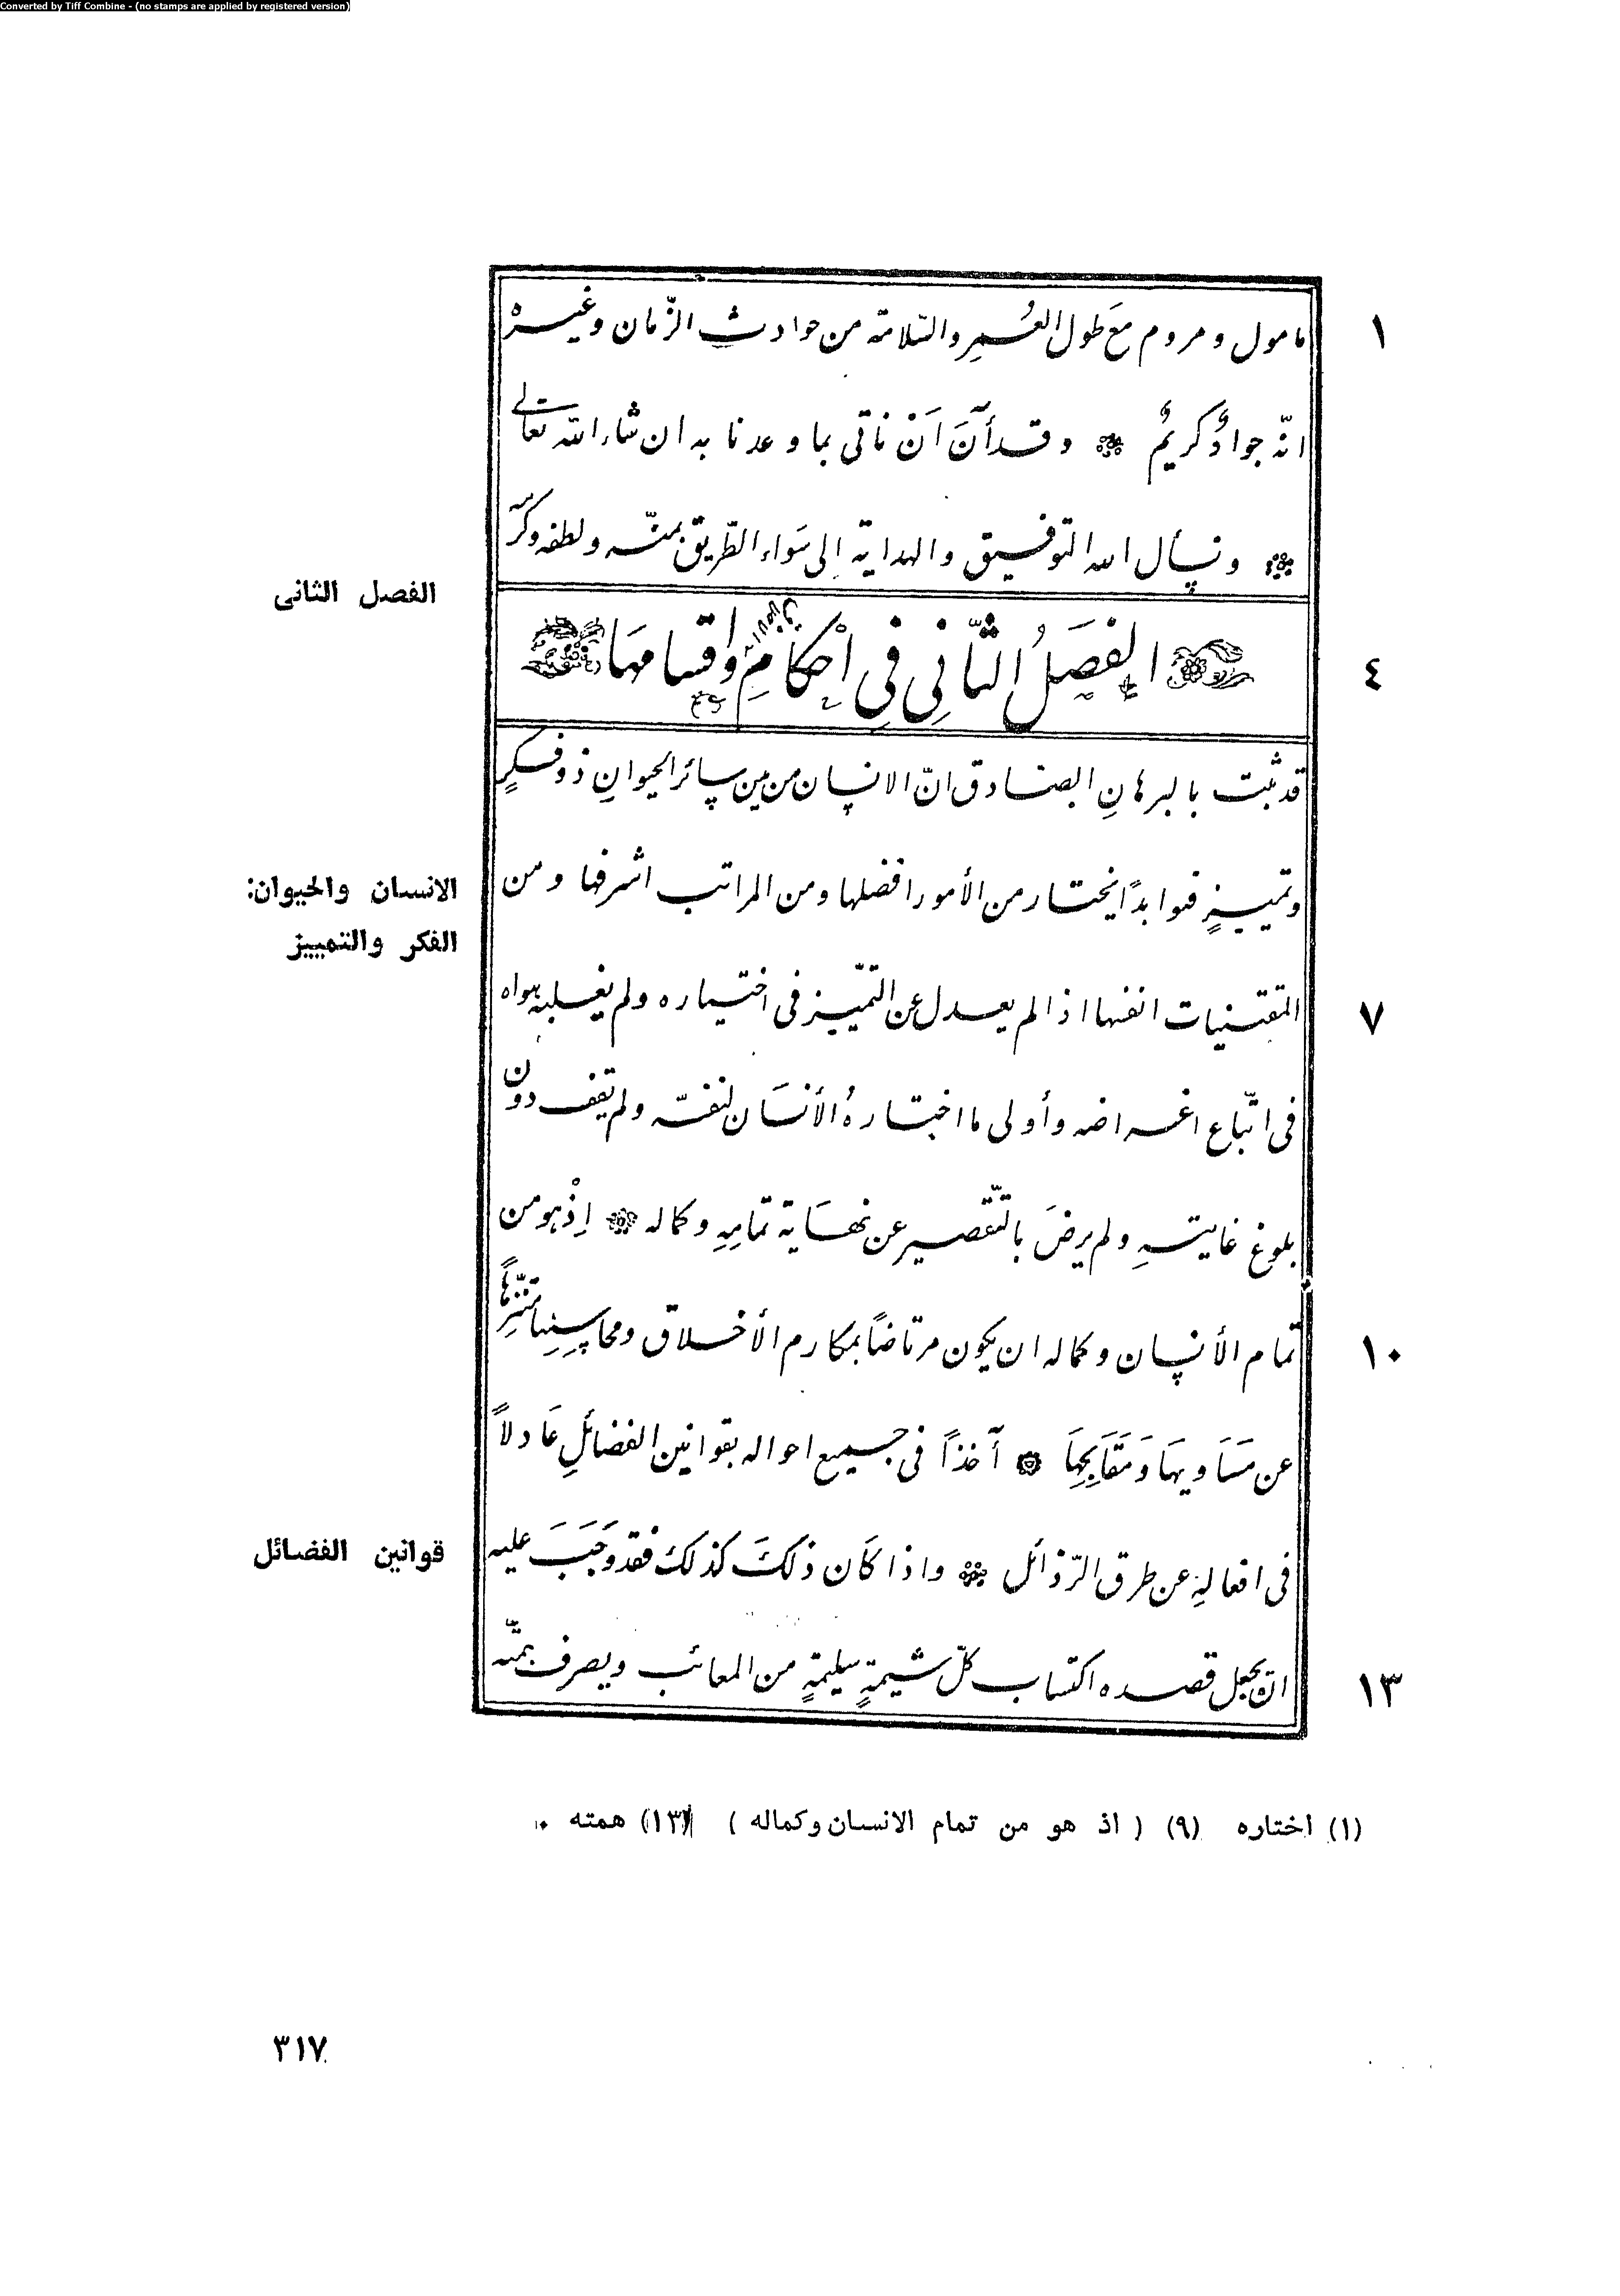 Converted by Tiff Combine - (no stamps are applied by registered version)
١
مامول ومروم مَع طول العُمرِ والسّلامة من حوادث الزّمان وغيره
انّه جوادٌ كريمٌ وقد أَنَ اَنْ ناتى بما وعدنا به ان شاء الله تعالى
ونسأل الله التوفيق والهداية إلى سَواء الطّريق بمنّه ولطفه وكرمه
الفصل الثانى
٤
الفصَلُ الثّانِي فِي احْكامِ الاخلاق واقسامهَا
قد ثبت بالبرهانِ الصادق انّ الانسان من بين سائر الحيوانِ ذو فكرٍ
الانسان والحيوان:
وتمييزٍ فهو ابدًا يختار من الأمور افضلها ومن المراتب اشرفها ومن
الفكر والتمييز
٧
المقتنيات انفسها اذا لم يعدل عن التمّييز فى اختياره ولم يغلبه هواه
فى اتّباع اغراضه وأولى ما اختارهُ الأنسَان لنفسه ولم يقف دون
بلوغ غايتهِ ولم يرضَ بالتّقصير عن نهَاية تمامِهِ وكماله اِذْ هو من
١٠
تمام الأنسان وكماله ان يكون مرتاضاً بمكارم الأخلاق ومحاسنِها متنزِّهاً
عن مَسَاويهَا وَمَقَابِحِهَا آخذاً فى جميع احواله بقوانين الفضائلِ عَادلاً
قوانين الفضائل
فى افعالهِ عن طرق الرّذائل واذا كاَن ذلكَ كذلك فقد وَجَبَ عليه
١٣
ان يجعل قصده اكتساب كلّ شيمةٍ سليمةٍ من المعائب ويصرف همّته
(١) اختاره (٩) ( اذ هو من تمام الانسان وكماله ) (١٣) همته ٠
٣١٧